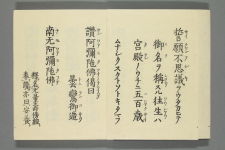 誓願不思議ヲウタカヒテ
御名ヲ稱スル往生ハ
宮殿ノウチニ五百歳
ムナシクスクトソトキタマフ
讚阿彌陀佛偈曰
曇鸞御造
南无阿彌陀佛